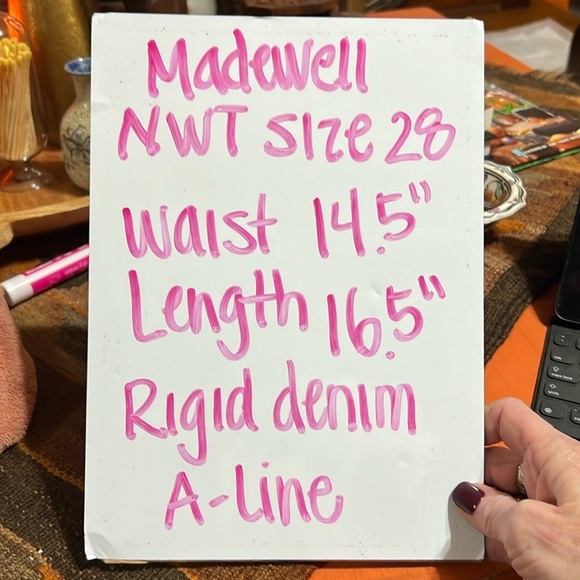 Madewell
NWT Size 28
Waist 14.5"
Length 16.5"
Rigid denim
A-Line